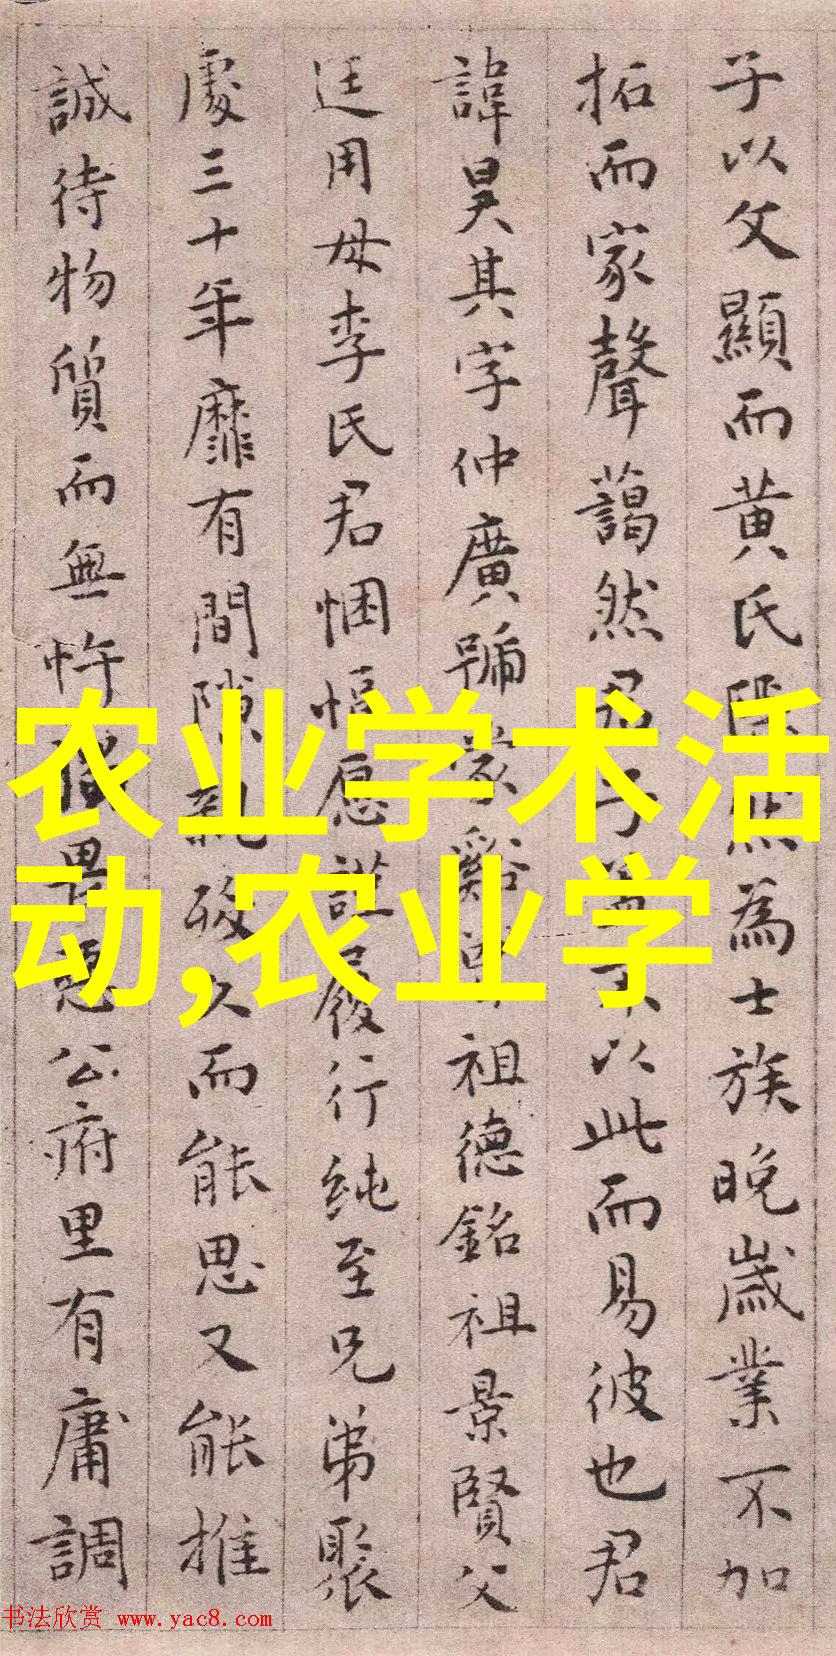 子以父顯而黄氏為士族晚歲業不加
拓而家聲藹然君子以此而易彼也君
諱昊其字仲廣號蒙谿曾祖德銘祖景賢父
廷用母李氏君悃愊愿謹履行纯至兄弟聚
處三十年靡有間隙親歿久而能思又能推
誠待物質而無忤畏惡公府里有庸調
农业学术活
动,农业学
书法欣赏 www.yac8.com